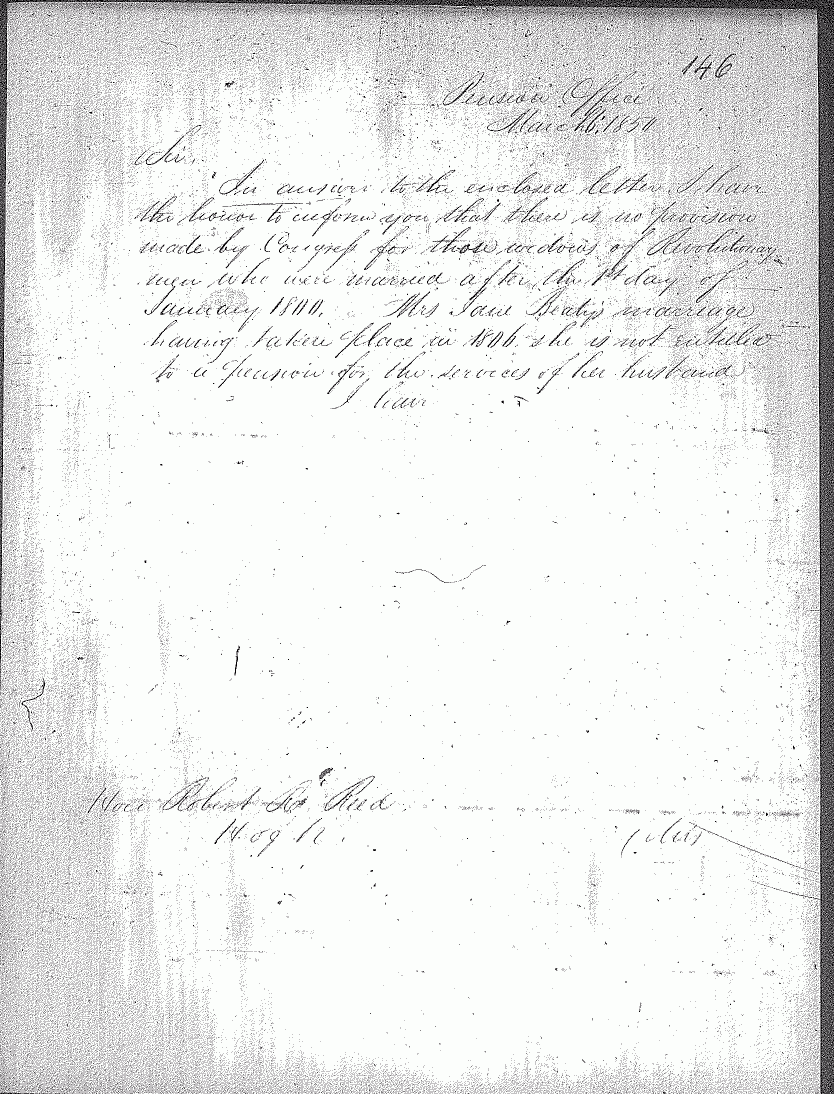 146
Pension Office
March 6, 1850
Sir,
In answer to the enclosed letter, I have
the honor to inform you that there is no provision
made by Congress for those widows of Revolutionary
men who were married after the 1st day of
January 1800. Mrs Jane Beaty's marriage
having taken place in 1806, she is not entitled
to a pension for the services of her husband
I have
Hon Robert R. Reed
H. of R.